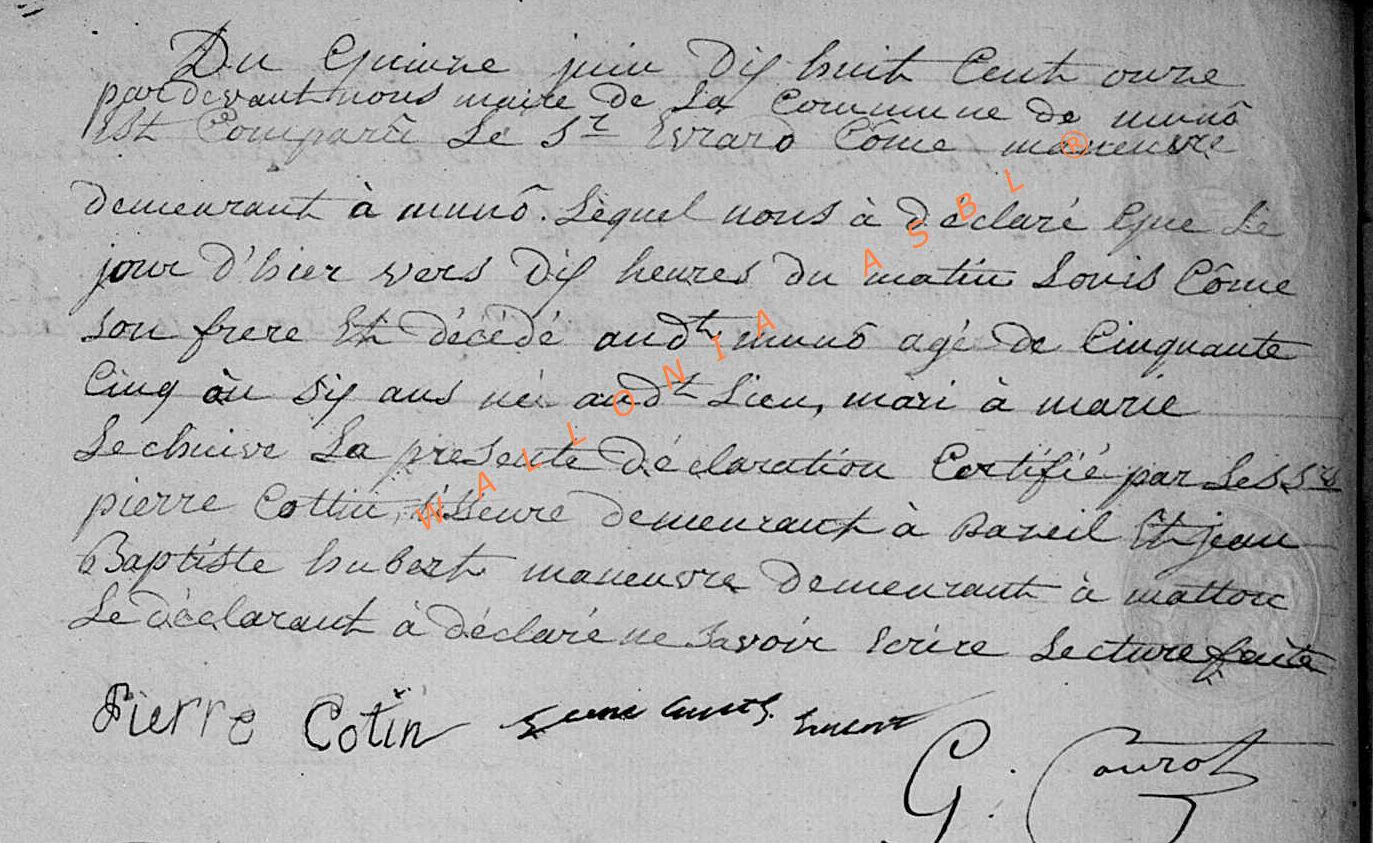 Du Quinze juin dix huit Cent onze
pardevant nous maire de La Commune de munô
Est Comparû Le Sr Evrard Côme maneuvre
demeurant à munô. Lequel nous à déclaré Que Le
jour d'hier vers dix heures du matin Louis Côme
son frere Est décédé audt munô agé de Cinquante
Cinq ou six ans né audt Lieu, mari à marie
La presente déclaration Certifié par Les Srs
pierre Cottin, demeurant à Et jean
Baptiste hubert maneuvre demeurant à matton
Le déclarant à déclaré ne savoir Ecrire Lecture faite
Pierre Cotin
G. Courot
WALLONIA ASBL ®